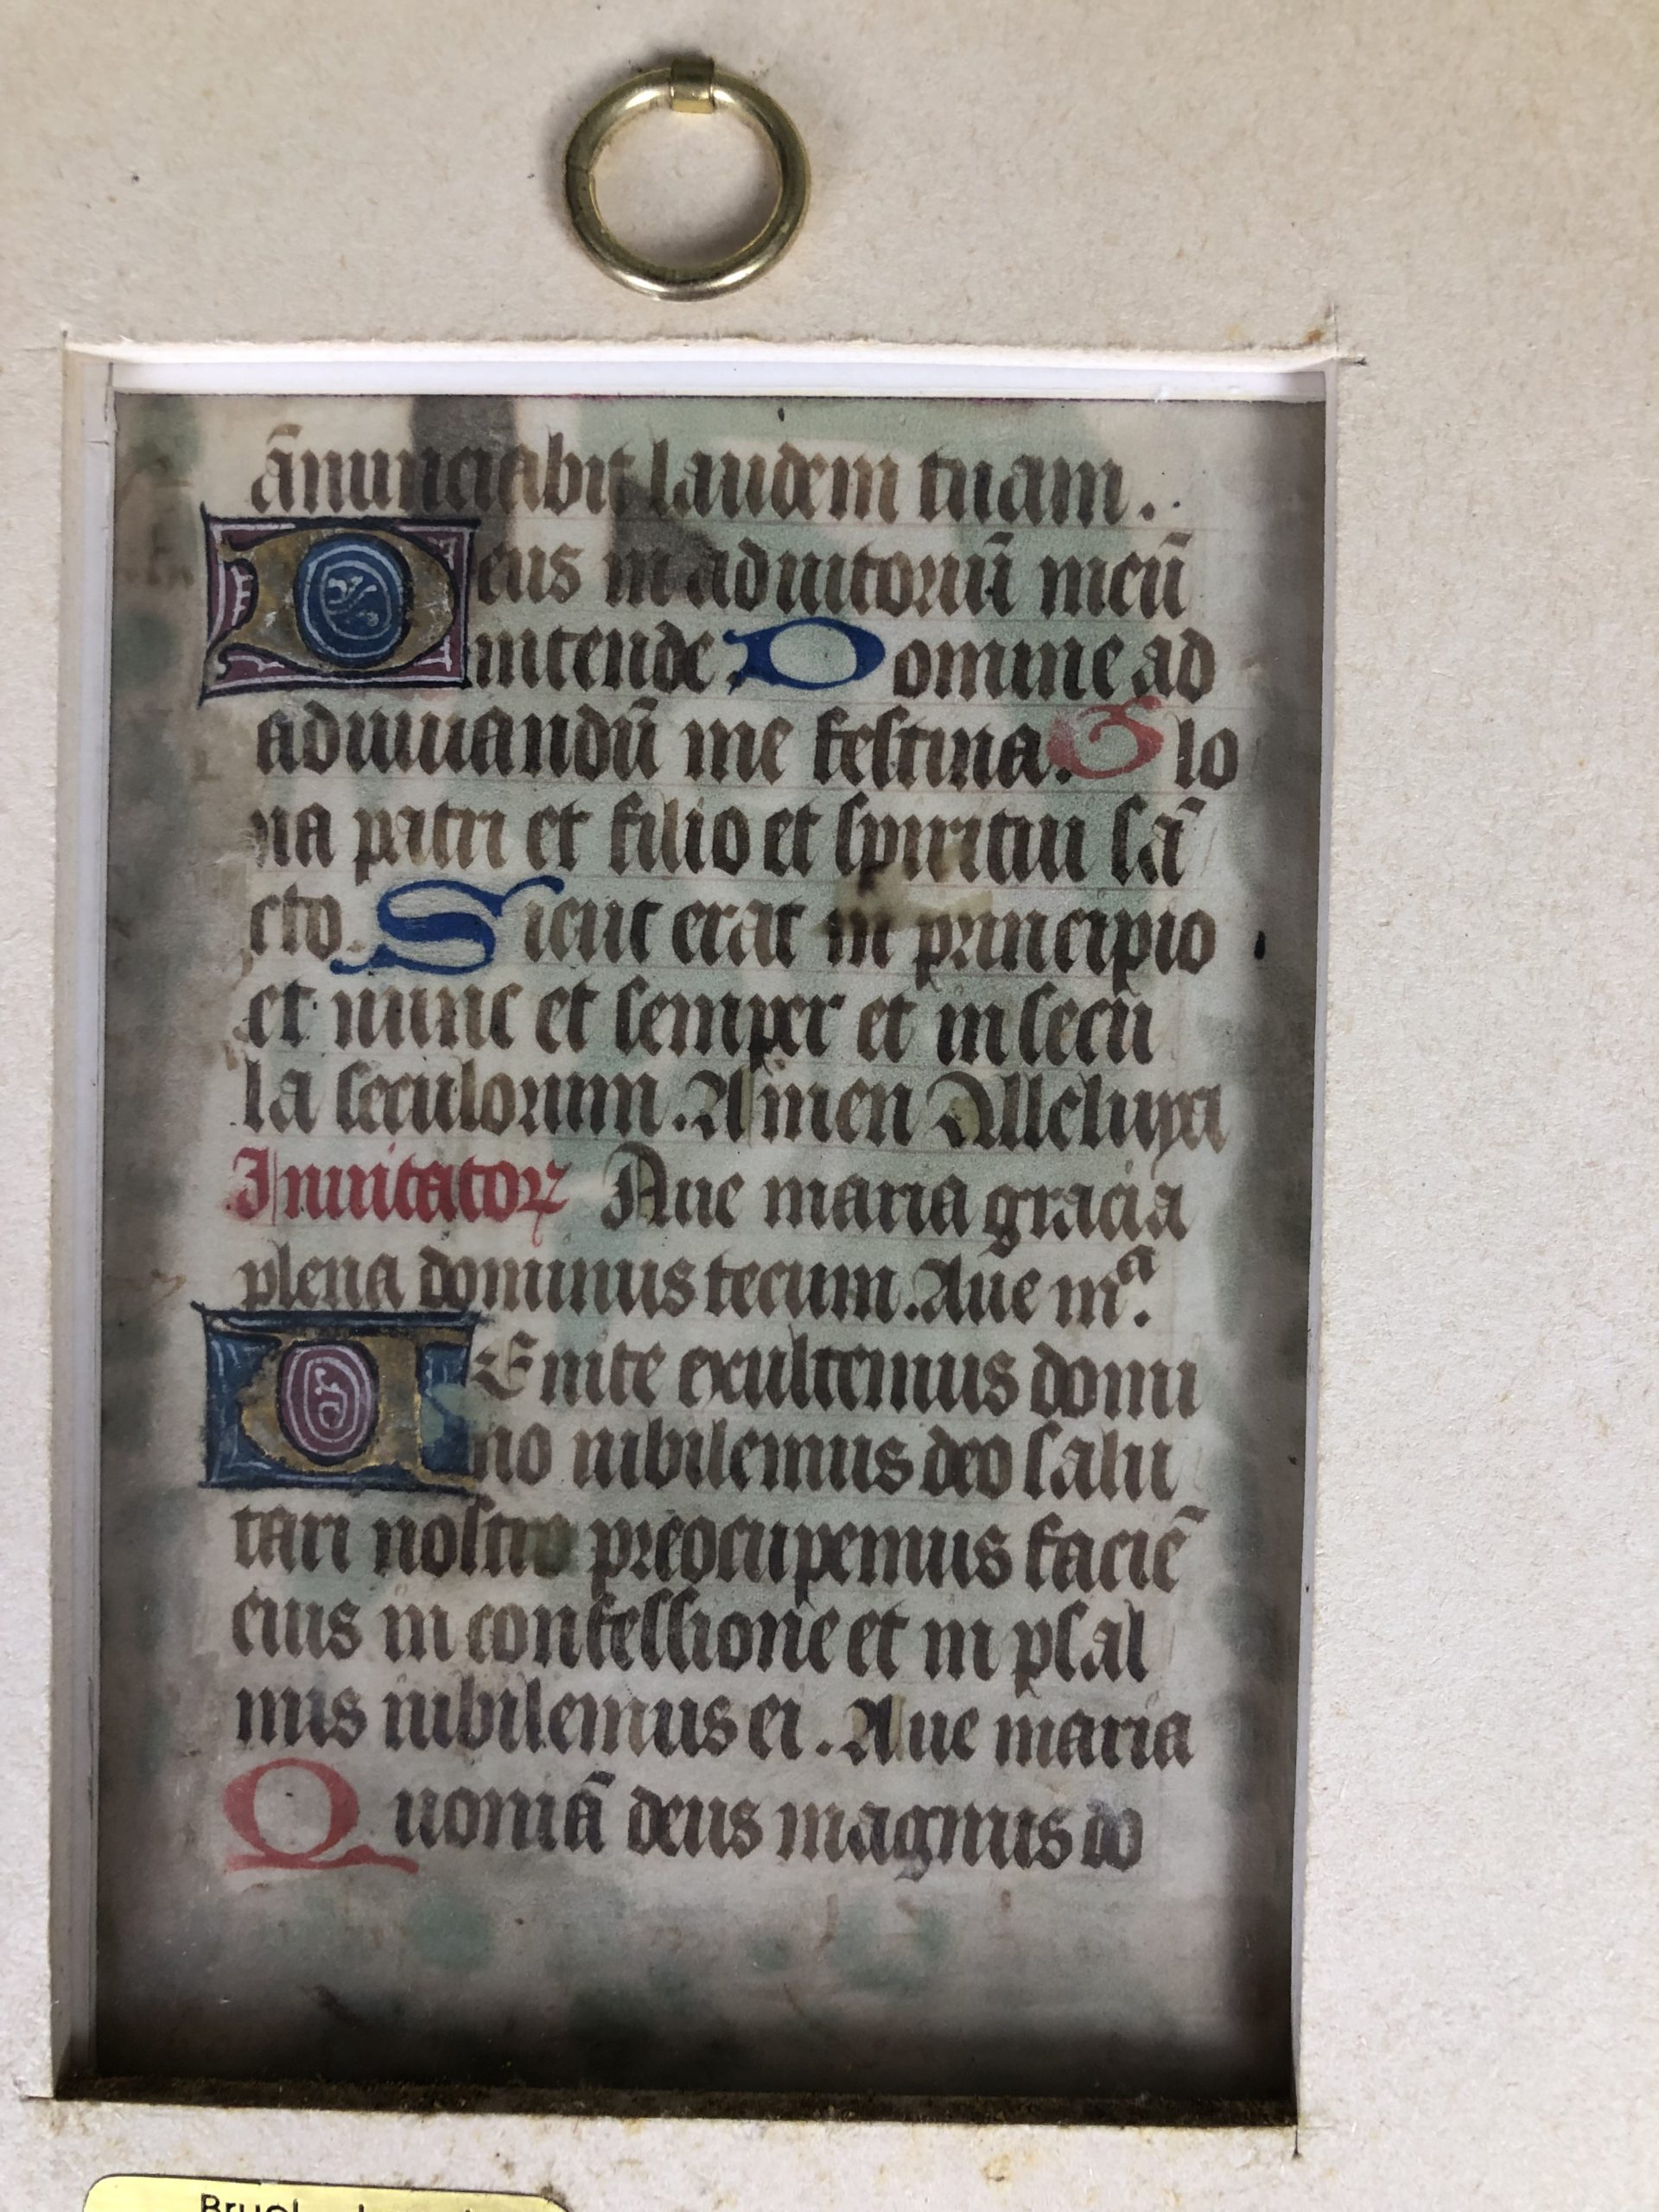 ānunciabit laudem tuam.
Deus in adiutoriū meū
intende. Domine ad
adiuuandū me festina. Glo
ria patri et filio et spiritui sā
cto. Sicut erat in principio
et nunc et semper et in secu
la seculorum. Amen Alleluya
Inuitatorꝝ Aue maria gracia
plena dominus tecum. Aue mᵃ.
VEnite exultemus domi
no iubilemus deo salu
tari nostro preocupemus faciē
eius in confessione et in psal
mis iubilemus ei. Aue maria
Quoniā deus magnus do